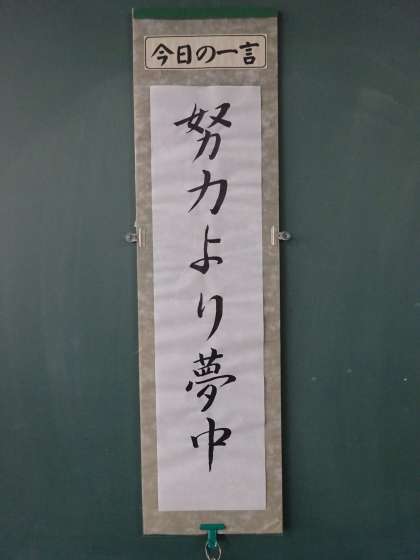 今日の一言
努力より夢中